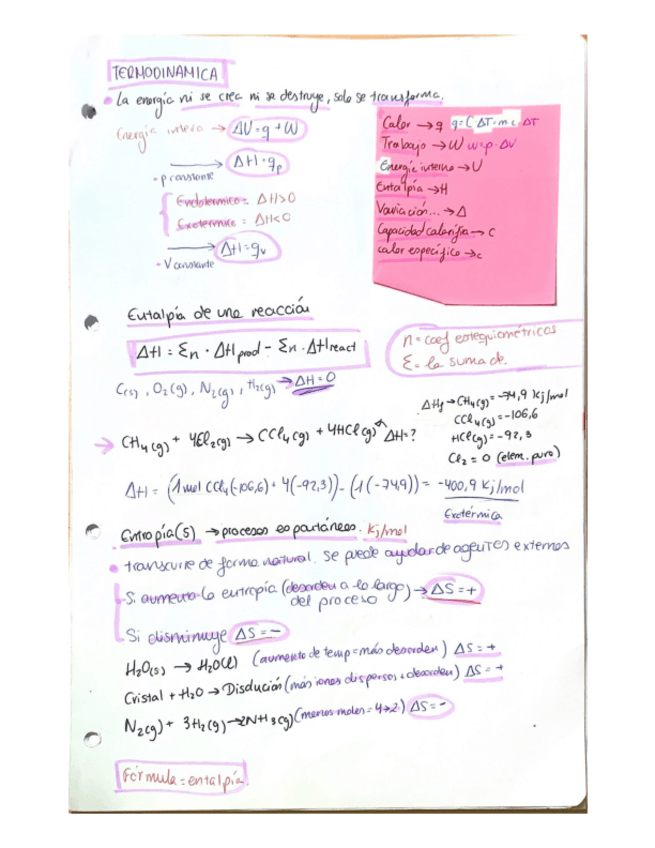 TERMODINAMICA
La energía ni se crea ni se destruye, solo se transforma.
Energía interna → ΔU=q+W
→ ΔH=qp
- p constante
Endotérmico = ΔH>0
Exotérmico = ΔH<0
→ ΔH=qv
- V constante
Calor → q q=C ΔT=m c ΔT
Trabajo → W w=p·ΔV
Energía interna → U
Entalpía → H
Variación... → Δ
Capacidad calorífica → C
calor específico → c
Entalpía de una reacción
ΔH = Σn · ΔHprod - Σn · ΔHreact
n = coef estequiométricos
Σ = la suma de.
C(s), O2(g), N2(g), H2(g) → ΔH=0
ΔHf → CH4(g) = -74,9 kj/mol
CCl4(g) = -106,6
HCl(g) = -92,3
Cl2 = 0 (elem. puro)
→ CH4(g) + 4Cl2(g) → CCl4(g) + 4HCl(g) ΔH=?
ΔH = (1 mol CCl4(-106,6) + 4(-92,3)) - (1(-74,9)) = -400,9 Kj/mol
Exotérmica
Entropía(s) → procesos espontáneos. Kj/mol
transcurre de forma natural. Se puede ayudar de agentes externos
Si aumenta la entropía (desorden a lo largo del proceso) → ΔS=+
Si disminuye ΔS=-
H2O(s) → H2O(l) (aumento de temp = más desorden) ΔS=+
Cristal + H2O → Disolución (más iones dispersos = desorden) ΔS=+
N2(g) + 3H2(g) → 2NH3(g) (menos moles = 4→2) ΔS=-
Fórmula = entalpía.